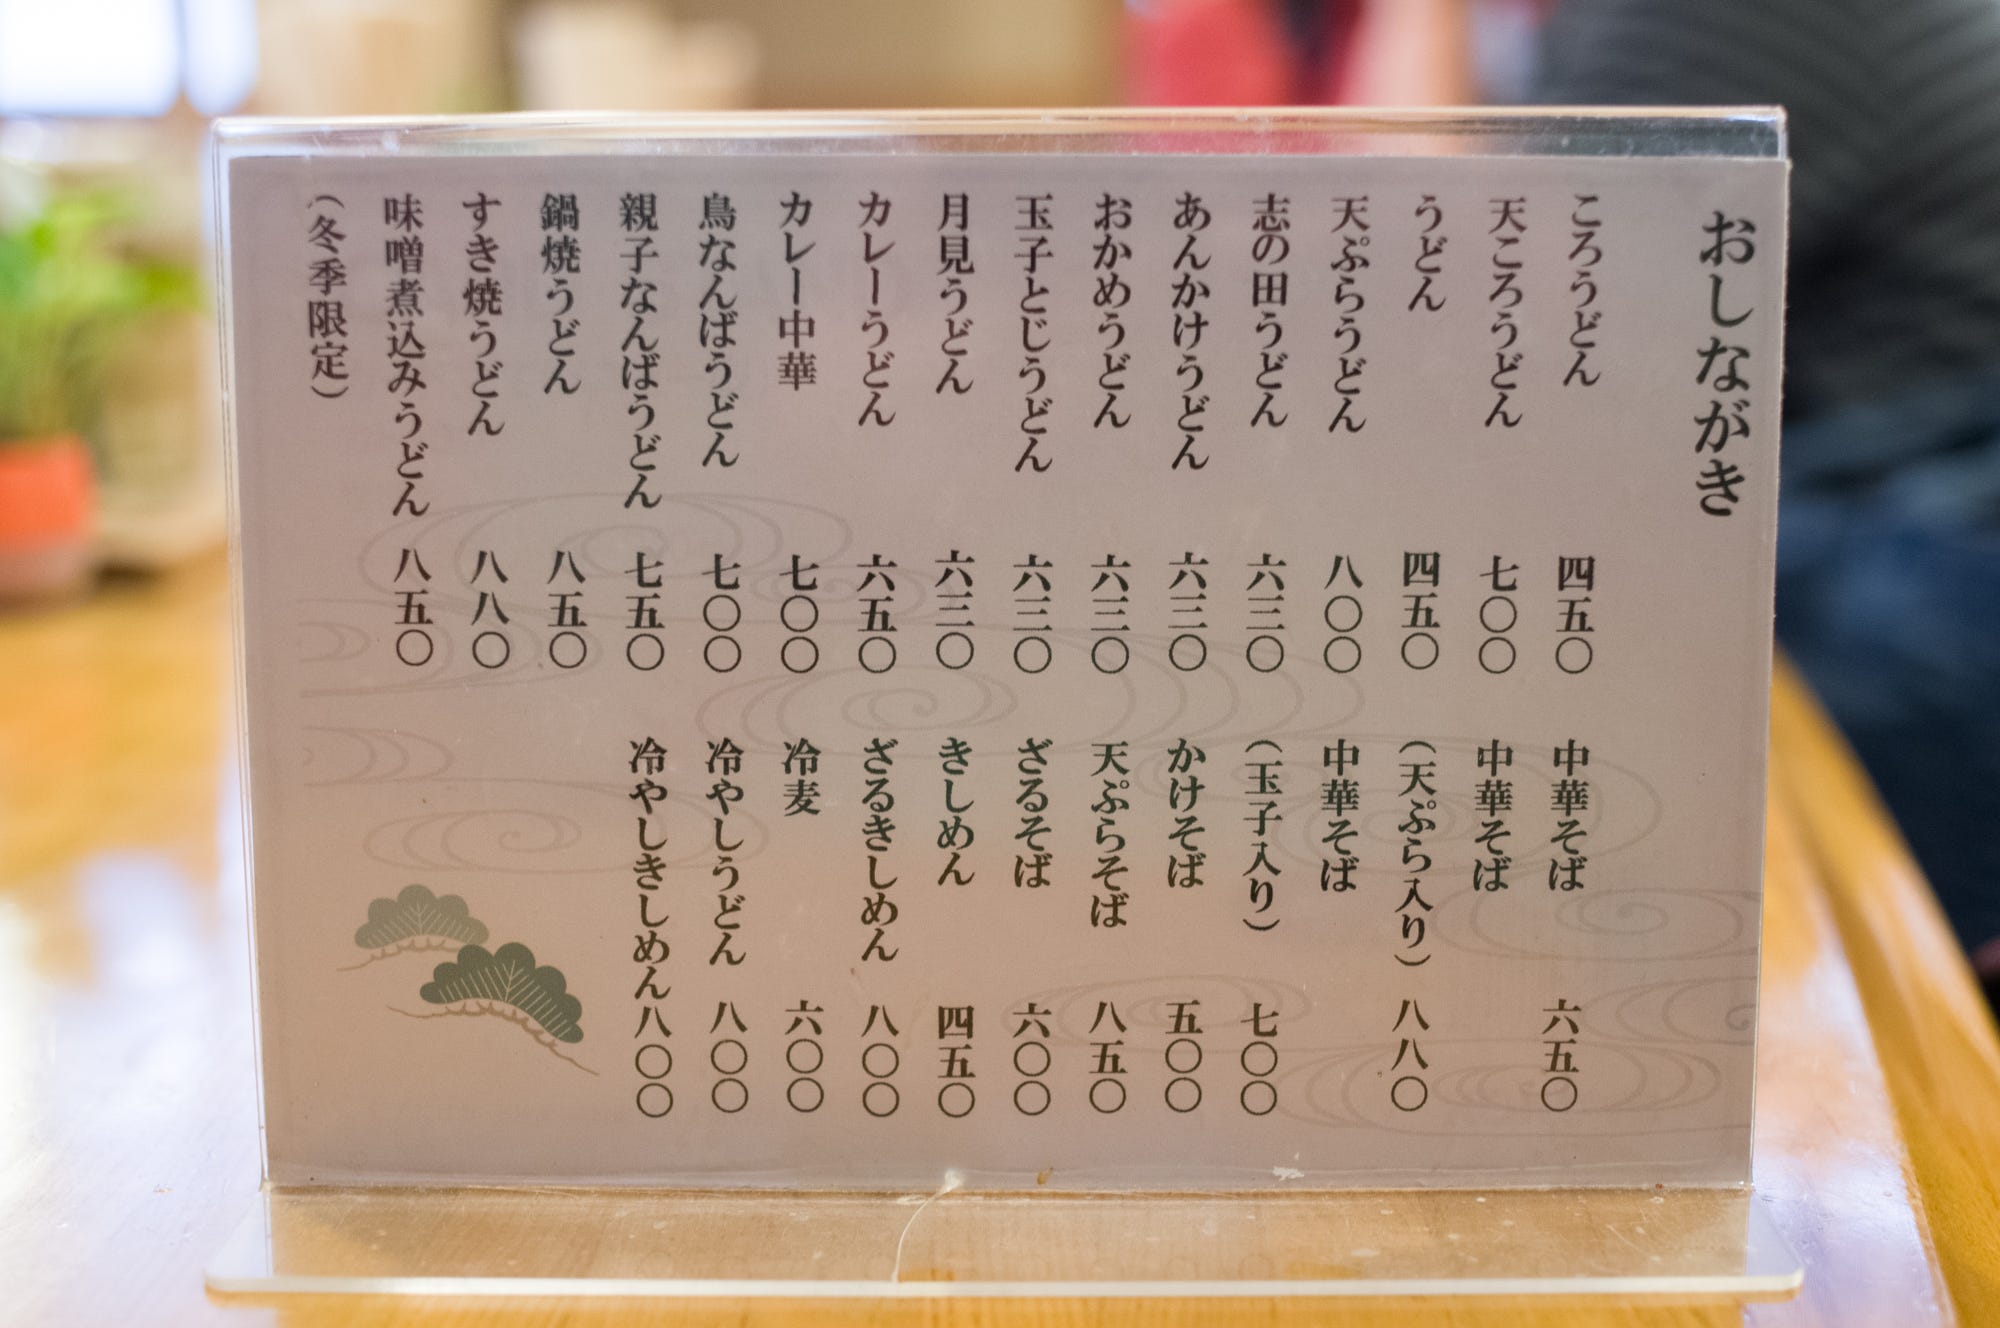 おしながき
ころうどん 四五〇
天ころうどん 七〇〇
うどん 四五〇
天ぷらうどん 八〇〇
志の田うどん 六三〇
あんかけうどん 六三〇
おかめうどん 六三〇
玉子とじうどん 六三〇
月見うどん 六三〇
カレーうどん 六五〇
カレー中華 七〇〇
鳥なんばうどん 七〇〇
親子なんばうどん 七五〇
鍋焼うどん 八五〇
すき焼うどん 八八〇
味噌煮込みうどん 八五〇
（冬季限定）
中華そば 六五〇
中華そば
（天ぷら入り） 八八〇
中華そば
（玉子入り） 七〇〇
かけそば 五〇〇
天ぷらそば 八五〇
ざるそば 六〇〇
きしめん 四五〇
ざるきしめん 八〇〇
冷麦 六〇〇
冷やしうどん 八〇〇
冷やしきしめん 八〇〇